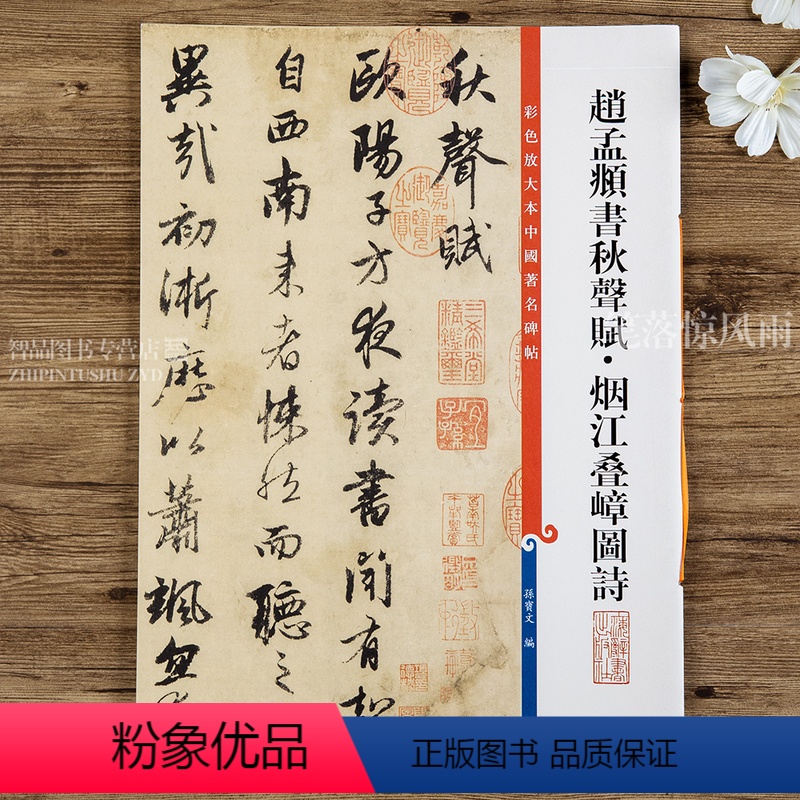 秋聲賦
歐陽子方夜读書聞有
自西南来者悚然而聽之
異哉初淅瀝以蕭颯忽
彩色放大本中國著名碑帖
趙孟頫書秋聲賦·烟江叠嶂圖詩
孫寶文 編
上海辭書出版社
智品图书专营店
ZHIPINTUSHU ZYD
笔落惊风雨
粉象优品
正版图书 品质保证